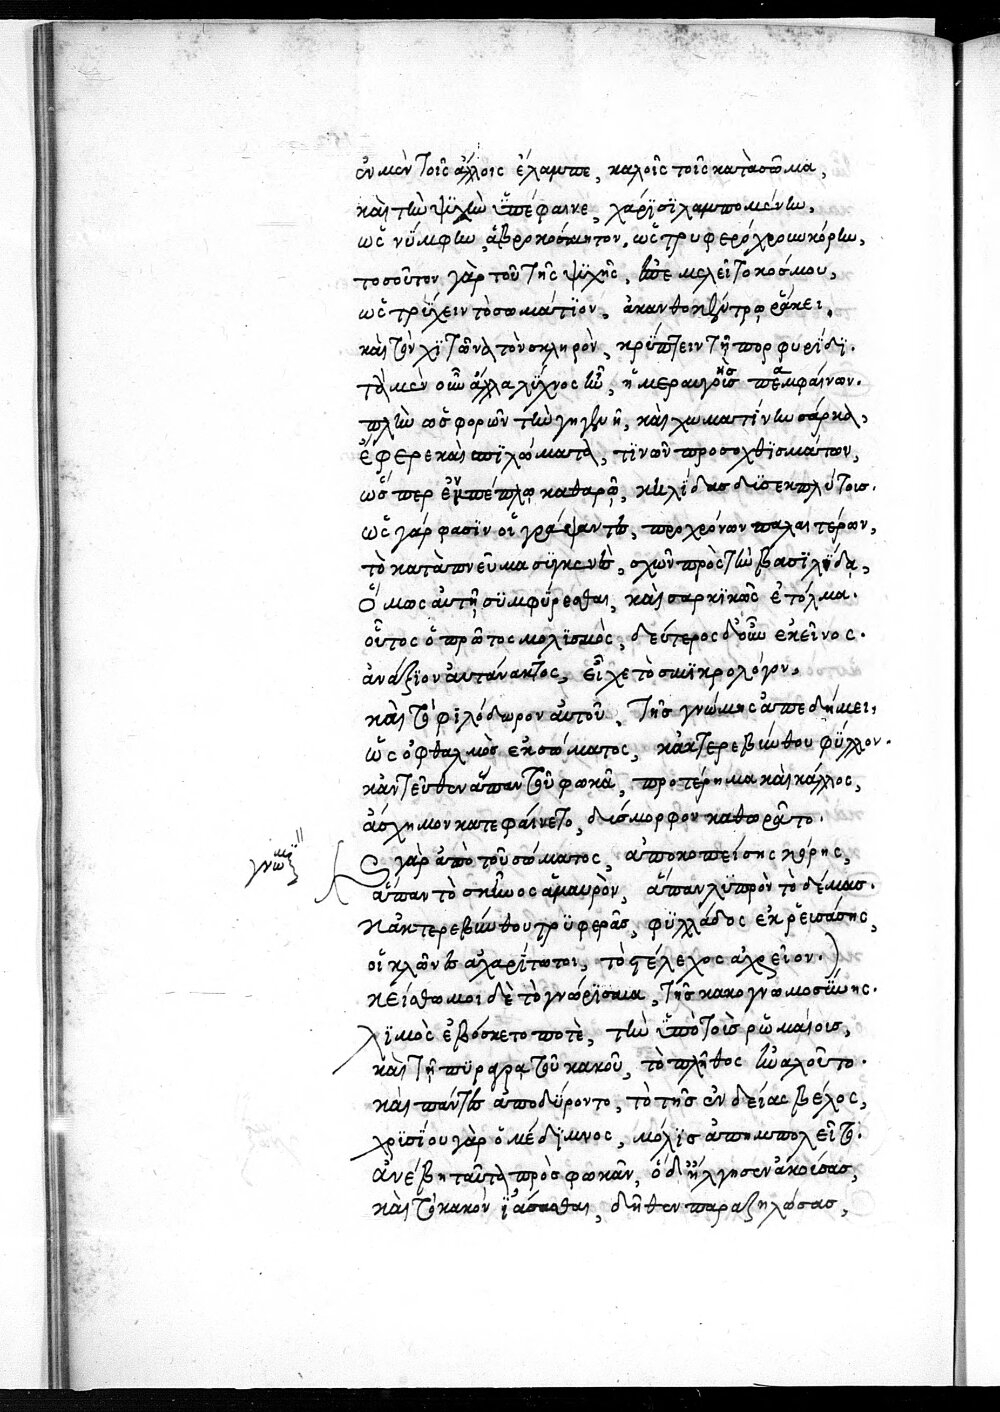 ἐν μὲν τοῖς ἄλλοις ἔλαμπε, καλοῖς τοῖς κατὰ σῶμα,
καὶ τὴν ψυχὴν ὑπέφαινε, χάρισι λαμπομένην,
ὡς νύμφην ἁβροκόσμητον, ὡς τρυφεροχρωκόρην,
τοσοῦτον γὰρ τοῦ τῆς ψυχῆς, ὑπεμελεῖτο κόσμου,
ὡς τρύχειν τὸ σωμάτιον, ἀκανθοκεξύτρῳ ῥάκει,
καὶ τὸν χιτῶνα τὸν σκληρὸν, κρύπτειν τῇ πορφυρίδι.
τὰ μὲν οὖν ἄλλα λύχνος ἦν, ἡμεραυγὴς πεμφαίνων.
πλὴν ὡς φορῶν τὴν γηγενῆ, καὶ χωματίνην σάρκα,
ἔφερε καὶ πιλώματα, τινῶν προσοχθισμάτων,
ὥσπερ ἐν πέπλῳ καθαρῷ, κηλίδας δυσεκπλύτοις.
ὡς γάρ φασιν οἱ γράψαντες, περὶ χρόνων παλαιτέρων,
τὸ κατὰ πνεῦμα συγγενὲς, σχὼν πρὸς τὴν βασιλίδα,
ὅμως αὐτῇ συμφύρεσθαι, καὶ σαρκικῶς ἐτόλμα.
οὗτος ὁ πρῶτος μολυσμὸς, δεύτερος δ' οὖν ἐκεῖνος.
ἀνάξιον αὐτάνακτος, εἶχε τὸ σμικρολόγον,
καὶ τὸ φιλόδωρον αὐτοῦ, τῆς γνώμης ἀπεδήμει,
ὡς ὀφθαλμὸς ἐκ σώματος, κἀκ τερεβίνθου φύλλον.
κἀντεῦθεν ἅπαν τοῦ φωκᾶ, προτέρημα καὶ κάλλος,
ἄσχημον κατεφαίνετο, δύσμορφον καθωρᾶτο.
ὡς γὰρ ἀπὸ τοῦ σώματος, ἀποκοπείσης κόρης,
ἅπαν τὸ σκῆνος ἀμαυρὸν, ἅπαν λυπρὸν τὸ δέμας.
κἀκ τερεβίνθου τρυφερᾶς, φυλλάδος ἐκρεισάσης,
οἱ κλῶνες ἀχαρίτωτοι, τὸ στέλεχος ἀχρεῖον.
κείσθω μοι δὲ τὸ γνώρισμα, τῆς κακογνωμοσύνης.
λιμὸς ἐβόσκετο ποτὲ, τὴν ὑπὸ τοῖς ῥωμαίοις,
καὶ τῇ πυράγρᾳ τοῦ κακοῦ, τὸ πλῆθος ἠναλοῦτο.
καὶ πάντες ἀπωδύροντο, τὸ τῆς ἐνδείας βέλος,
χρυσίου γὰρ ὁ μέδιμνος, μόλις ἀπημπολεῖτο.
ἀνέβη ταῦτα πρὸς φωκᾶν, ὁ δ' ἤλγησεν ἀκούσας,
καὶ τὸ κακὸν ἰάσασθαι, δῆθεν παραζηλώσας,